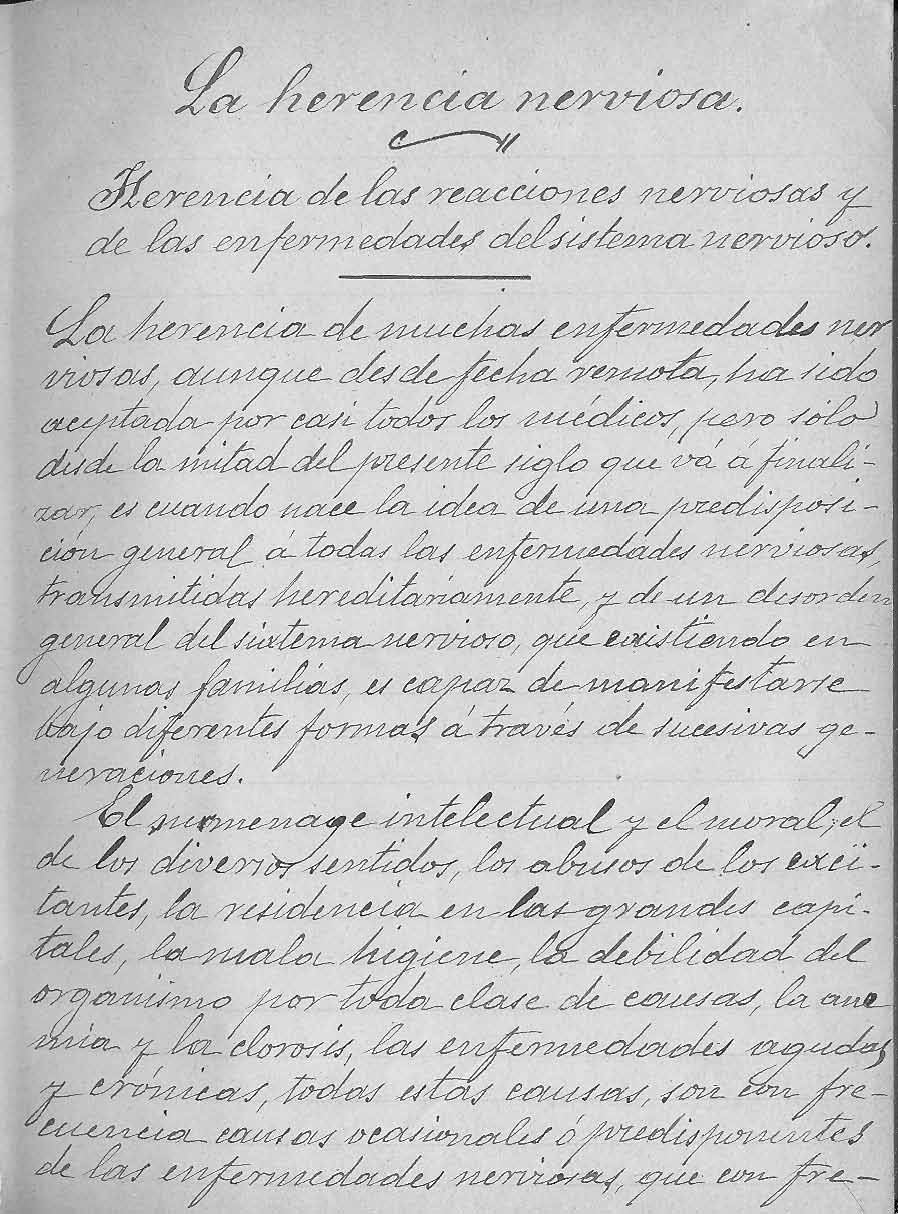 La herencia nerviosa.
Herencia de las reacciones nerviosas y
de las enfermedades del sistema nervioso.
La herencia de muchas enfermedades ner
viosas, aunque desde fecha remota, ha sido
aceptada por casi todos los médicos, pero sólo
desde la mitad del presente siglo que vá á finali-
zar, es cuando nace la idea de una predisposi-
ción general á todas las enfermedades nerviosas,
transmitidas hereditáriamente, y de un desorden
general del sixtema nervioso, que existiendo en
algunas familias, es capaz de manifestarse
bajo diferentes formas á través de sucesivas ge-
neraciones.
El surmenage intelectual y el moral, el
de los diversos sentidos, los abusos de los exci-
tantes, la residencia en las grandes capi-
tales, la mala higiene, la debilidad del
organismo por toda clase de causas, la ane
mia y la clorosis, las enfermedades agudas
y crónicas, todas estas causas, son con fre-
cuencia causas ocasionales ó predisponentes
de las enfermedades nerviosas, que con fre-